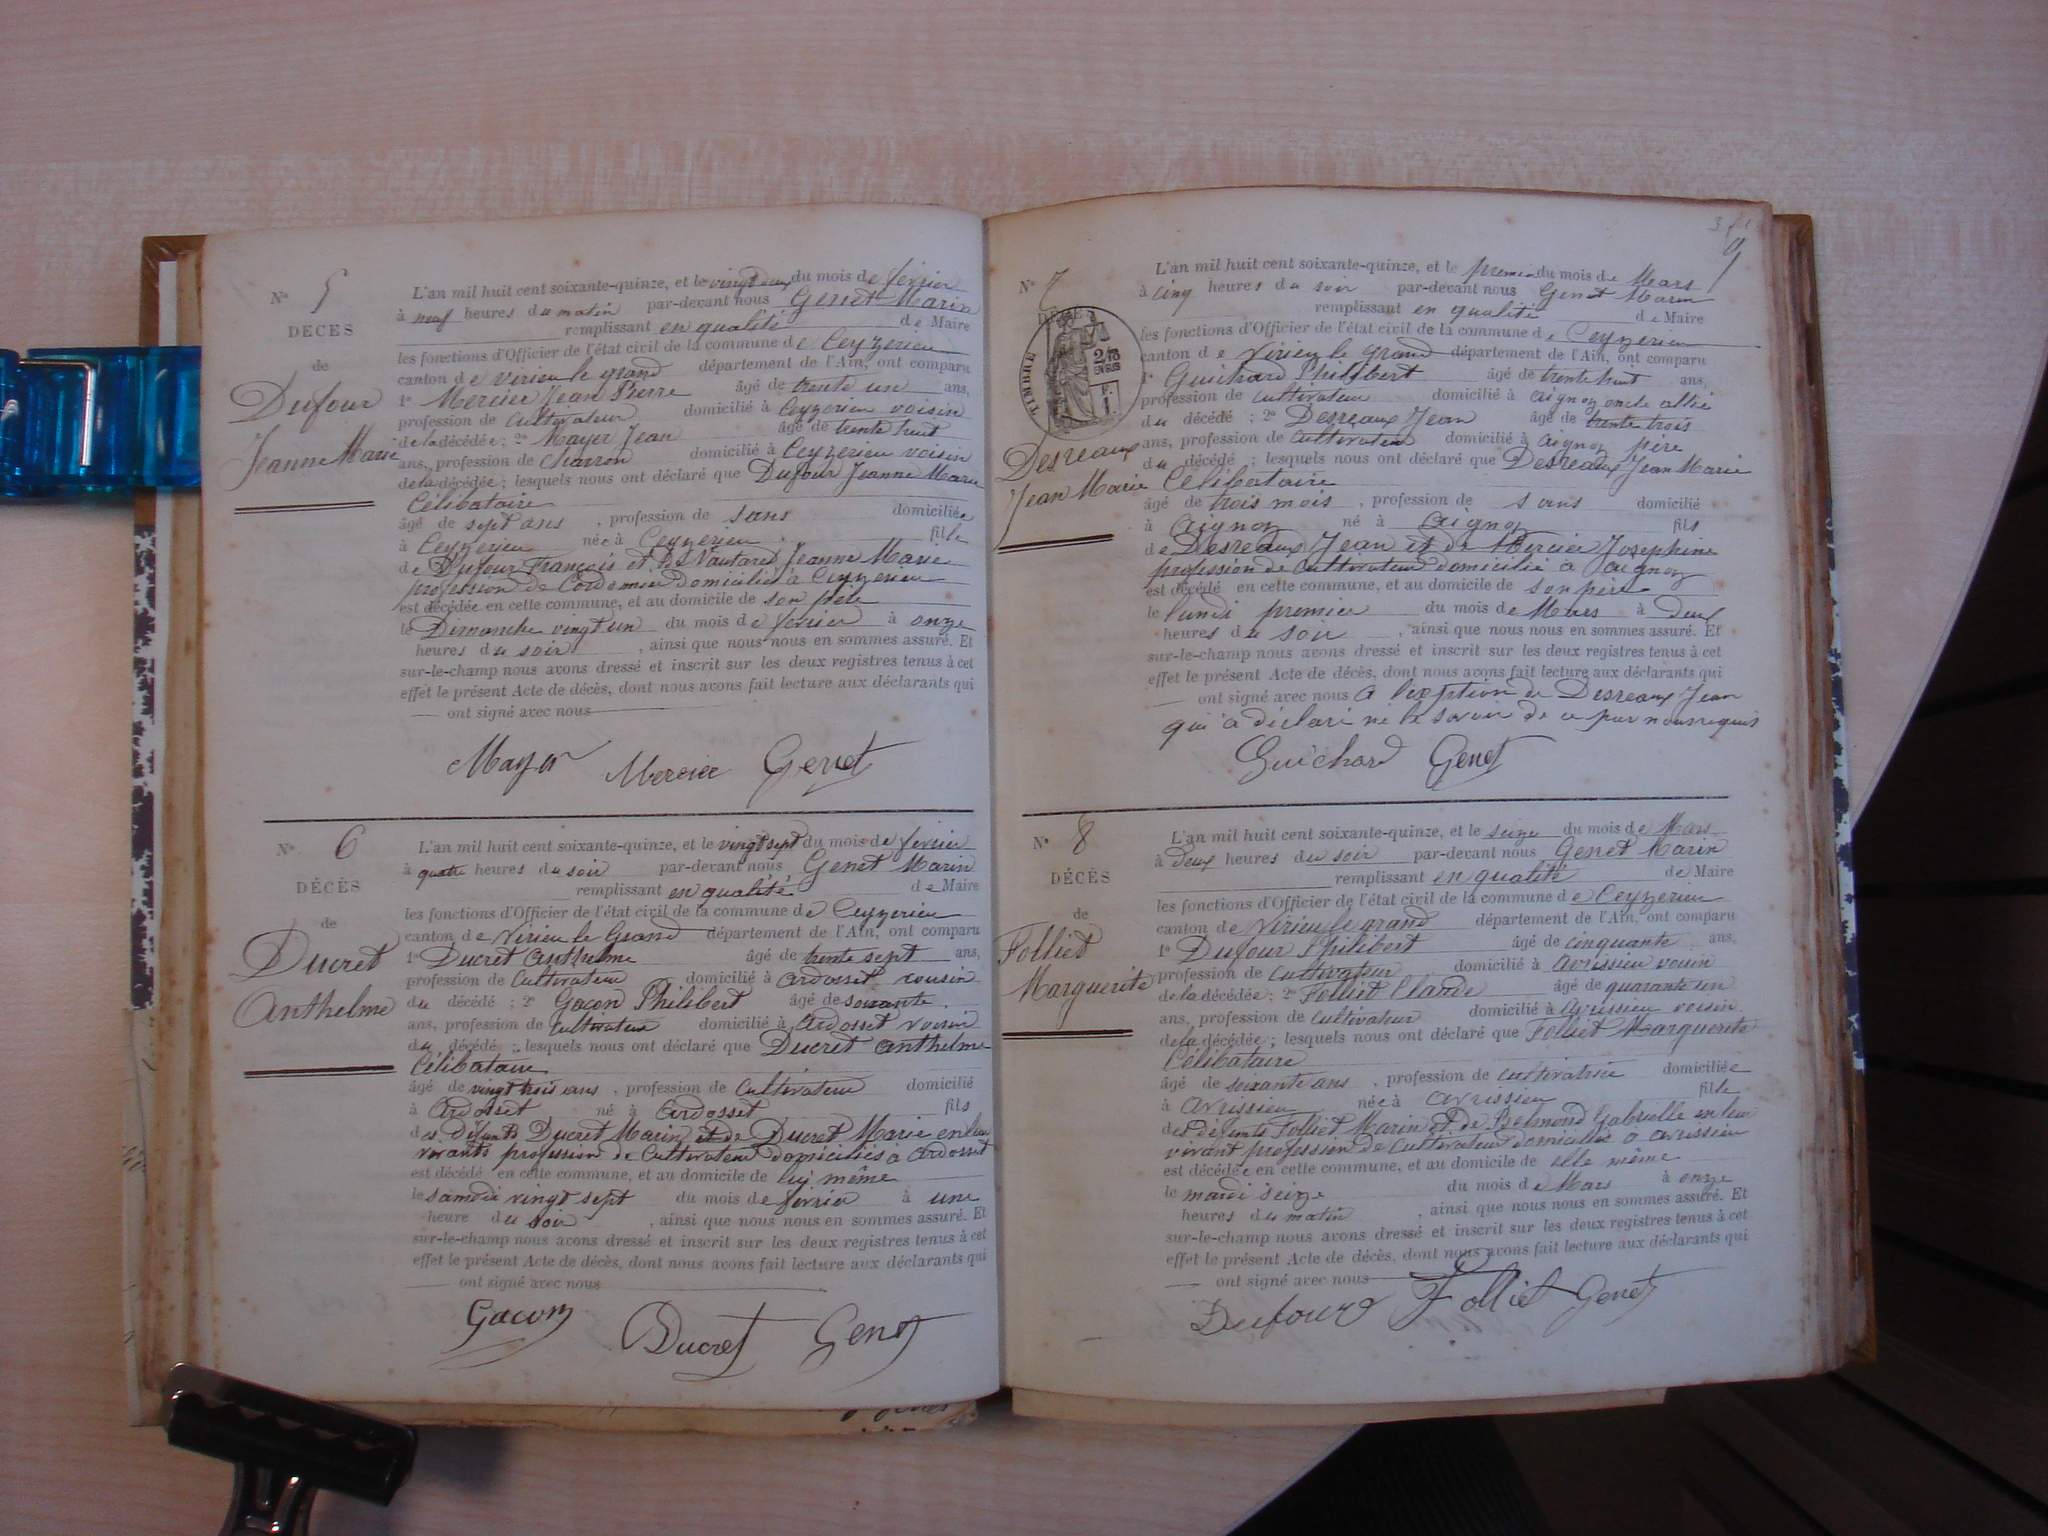 N° 5
DÉCÈS
de
Dufour
Jeanne Marie
L'an mil huit cent soixante-quinze, et le vingt deux du mois de fevrier
à neuf heures du matin par-devant nous Genet Marin
remplissant en qualité de Maire
les fonctions d'Officier de l'état civil de la commune de Ceyzerieu
canton de Virieu le grand département de l'Ain, ont comparu
1° Mercier Jean Pierre âgé de trente un ans,
profession de Cultivateur domicilié à Ceyzerieu voisin
de la décédée ; 2° Mayer Jean âgé de trente huit
ans, profession de Charron domicilié à Ceyzerieu voisin
de la décédée ; lesquels nous ont déclaré que Dufour Jeanne Marie
Célibataire
âgé de sept ans , profession de sans domiciliée
à Ceyzerieu née à Ceyzerieu fille
de Dufour François et de Jeanne Marie
profession de Cordonnier Domiciliés à Ceyzerieu
est décédée en cette commune, et au domicile de son père
le Dimanche vingt un du mois de fevrier à onze
heures du soir , ainsi que nous nous en sommes assuré. Et
sur-le-champ nous avons dressé et inscrit sur les deux registres tenus à cet
effet le présent Acte de décès, dont nous avons fait lecture aux déclarants qui
ont signé avec nous
Mayer Mercier Genet
N° 6
DÉCÈS
de
Ducret
Anthelme
L'an mil huit cent soixante-quinze, et le vingt sept du mois de fevrier
à quatre heures du soir par-devant nous Genet Marin
remplissant en qualité de Maire
les fonctions d'Officier de l'état civil de la commune de Ceyzerieu
canton de Virieu le Grand département de l'Ain, ont comparu
1° Ducret Anthelme âgé de trente sept ans,
profession de Cultivateur domicilié à Ardosset cousin
du décédé ; 2° Gacon Philibert âgé de soixante
ans, profession de Cultivateur domicilié à Ardosset voisin
du décédé ; lesquels nous ont déclaré que Ducret Anthelme
Célibataire
âgé de vingt trois ans , profession de Cultivateur domicilié
à Ardosset né à Ardosset fils
des Défunts Ducret Marin et de Ducret Marie en leur
vivants profession de Cultivateur Domiciliés à Ardosset
est décédé en cette commune, et au domicile de lui même
le samedi vingt sept du mois de fevrier à une
heure du soir , ainsi que nous nous en sommes assuré. Et
sur-le-champ nous avons dressé et inscrit sur les deux registres tenus à cet
effet le présent Acte de décès, dont nous avons fait lecture aux déclarants qui
ont signé avec nous
Gacon Ducret Genet
9
N° 7
DÉCÈS
TIMBRE
2/10
EN SUS
F.
1.
Desreaux
Jean Marie
L'an mil huit cent soixante-quinze, et le premier du mois de Mars
à cinq heures du soir par-devant nous Genet Marin
remplissant en qualité de Maire
les fonctions d'Officier de l'état civil de la commune de Ceyzerieu
canton de Virieu le grand département de l'Ain, ont comparu
1° Guichard Philibert âgé de trente huit ans,
profession de Cultivateur domicilié à Aignoz oncle allié
du décédé ; 2° Desreaux Jean âgé de trente trois
ans, profession de Cultivateur domicilié à Aignoz père
du décédé ; lesquels nous ont déclaré que Desreaux Jean Marie
Célibataire
âgé de trois mois , profession de sans domicilié
à Aignoz né à Aignoz fils
de Desreaux Jean et de Mercier Josephine
profession de Cultivateur domicilié à Aignoz
est décédé en cette commune, et au domicile de son père
le lundi premier du mois de Mars à deux
heures du soir , ainsi que nous nous en sommes assuré. Et
sur-le-champ nous avons dressé et inscrit sur les deux registres tenus à cet
effet le présent Acte de décès, dont nous avons fait lecture aux déclarants qui
ont signé avec nous à l'exception de Desreaux Jean
qui a déclaré ne le savoir de ce par nous requis
Guichard Genet
N° 8
DÉCÈS
de
Folliet
Marguerite
L'an mil huit cent soixante-quinze, et le seize du mois de Mars
à deux heures du soir par-devant nous Genet Marin
remplissant en qualité de Maire
les fonctions d'Officier de l'état civil de la commune de Ceyzerieu
canton de Virieu le grand département de l'Ain, ont comparu
1° Dufour Philibert âgé de cinquante ans,
profession de Cultivateur domicilié à Avrissieu voisin
de la décédée ; 2° Folliet Claude âgé de quarante un
ans, profession de Cultivateur domicilié à Avrissieu voisin
de la décédée ; lesquels nous ont déclaré que Folliet Marguerite
Célibataire
âgé de soixante ans , profession de cultivatrice domiciliée
à Avrissieu née à Avrissieu fille
des défunts Folliet Marin et de Gabrielle en leur
vivant profession de Cultivateur domiciliés à Avrissieu
est décédée en cette commune, et au domicile de elle même
le mardi seize du mois de Mars à onze
heures du matin , ainsi que nous nous en sommes assuré. Et
sur-le-champ nous avons dressé et inscrit sur les deux registres tenus à cet
effet le présent Acte de décès, dont nous avons fait lecture aux déclarants qui
ont signé avec nous
Dufour Folliet Genet